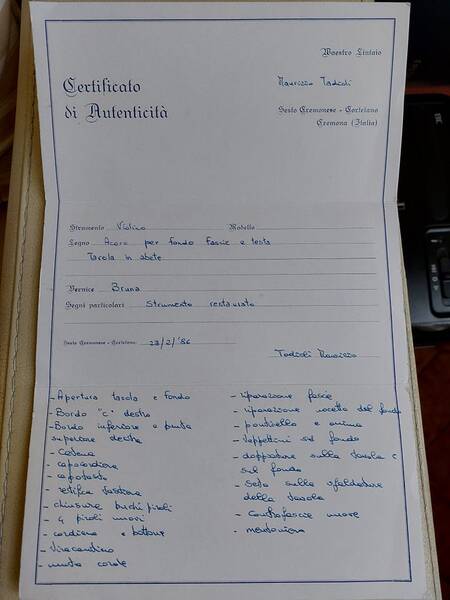 Certificato
di Autenticità
Maestro Liutaio
Maurizio Tadioli
Sesto Cremonese - Cortetano
Cremona (Italia)
Strumento Violino Modello
Legno Acero per fondo fascie e testa
Tavola in abete
Vernice Bruna
Segni particolari Strumento restaurato
Sesto Cremonese - Cortetano, 23/2/'86
Tadioli Maurizio
- Apertura tavola e fondo
- Bordo "C" destro
- Bordo inferiore e punta
superiore destra
- Catena
- capocordiera
- capotasto
- rettifica tastiera
- chiusura buchi piroli
- 4 piroli nuovi
- cordiera e bottone
- tiracantino
- muta corde
- riparazione fascie
- riparazione nocetta del fondo
- ponticello e anima
- tappettini sul fondo
- doppature sulla tavola e
sul fondo
- seta sulle sfaldature
della tavola
- controfascie nuove
- mentoniera